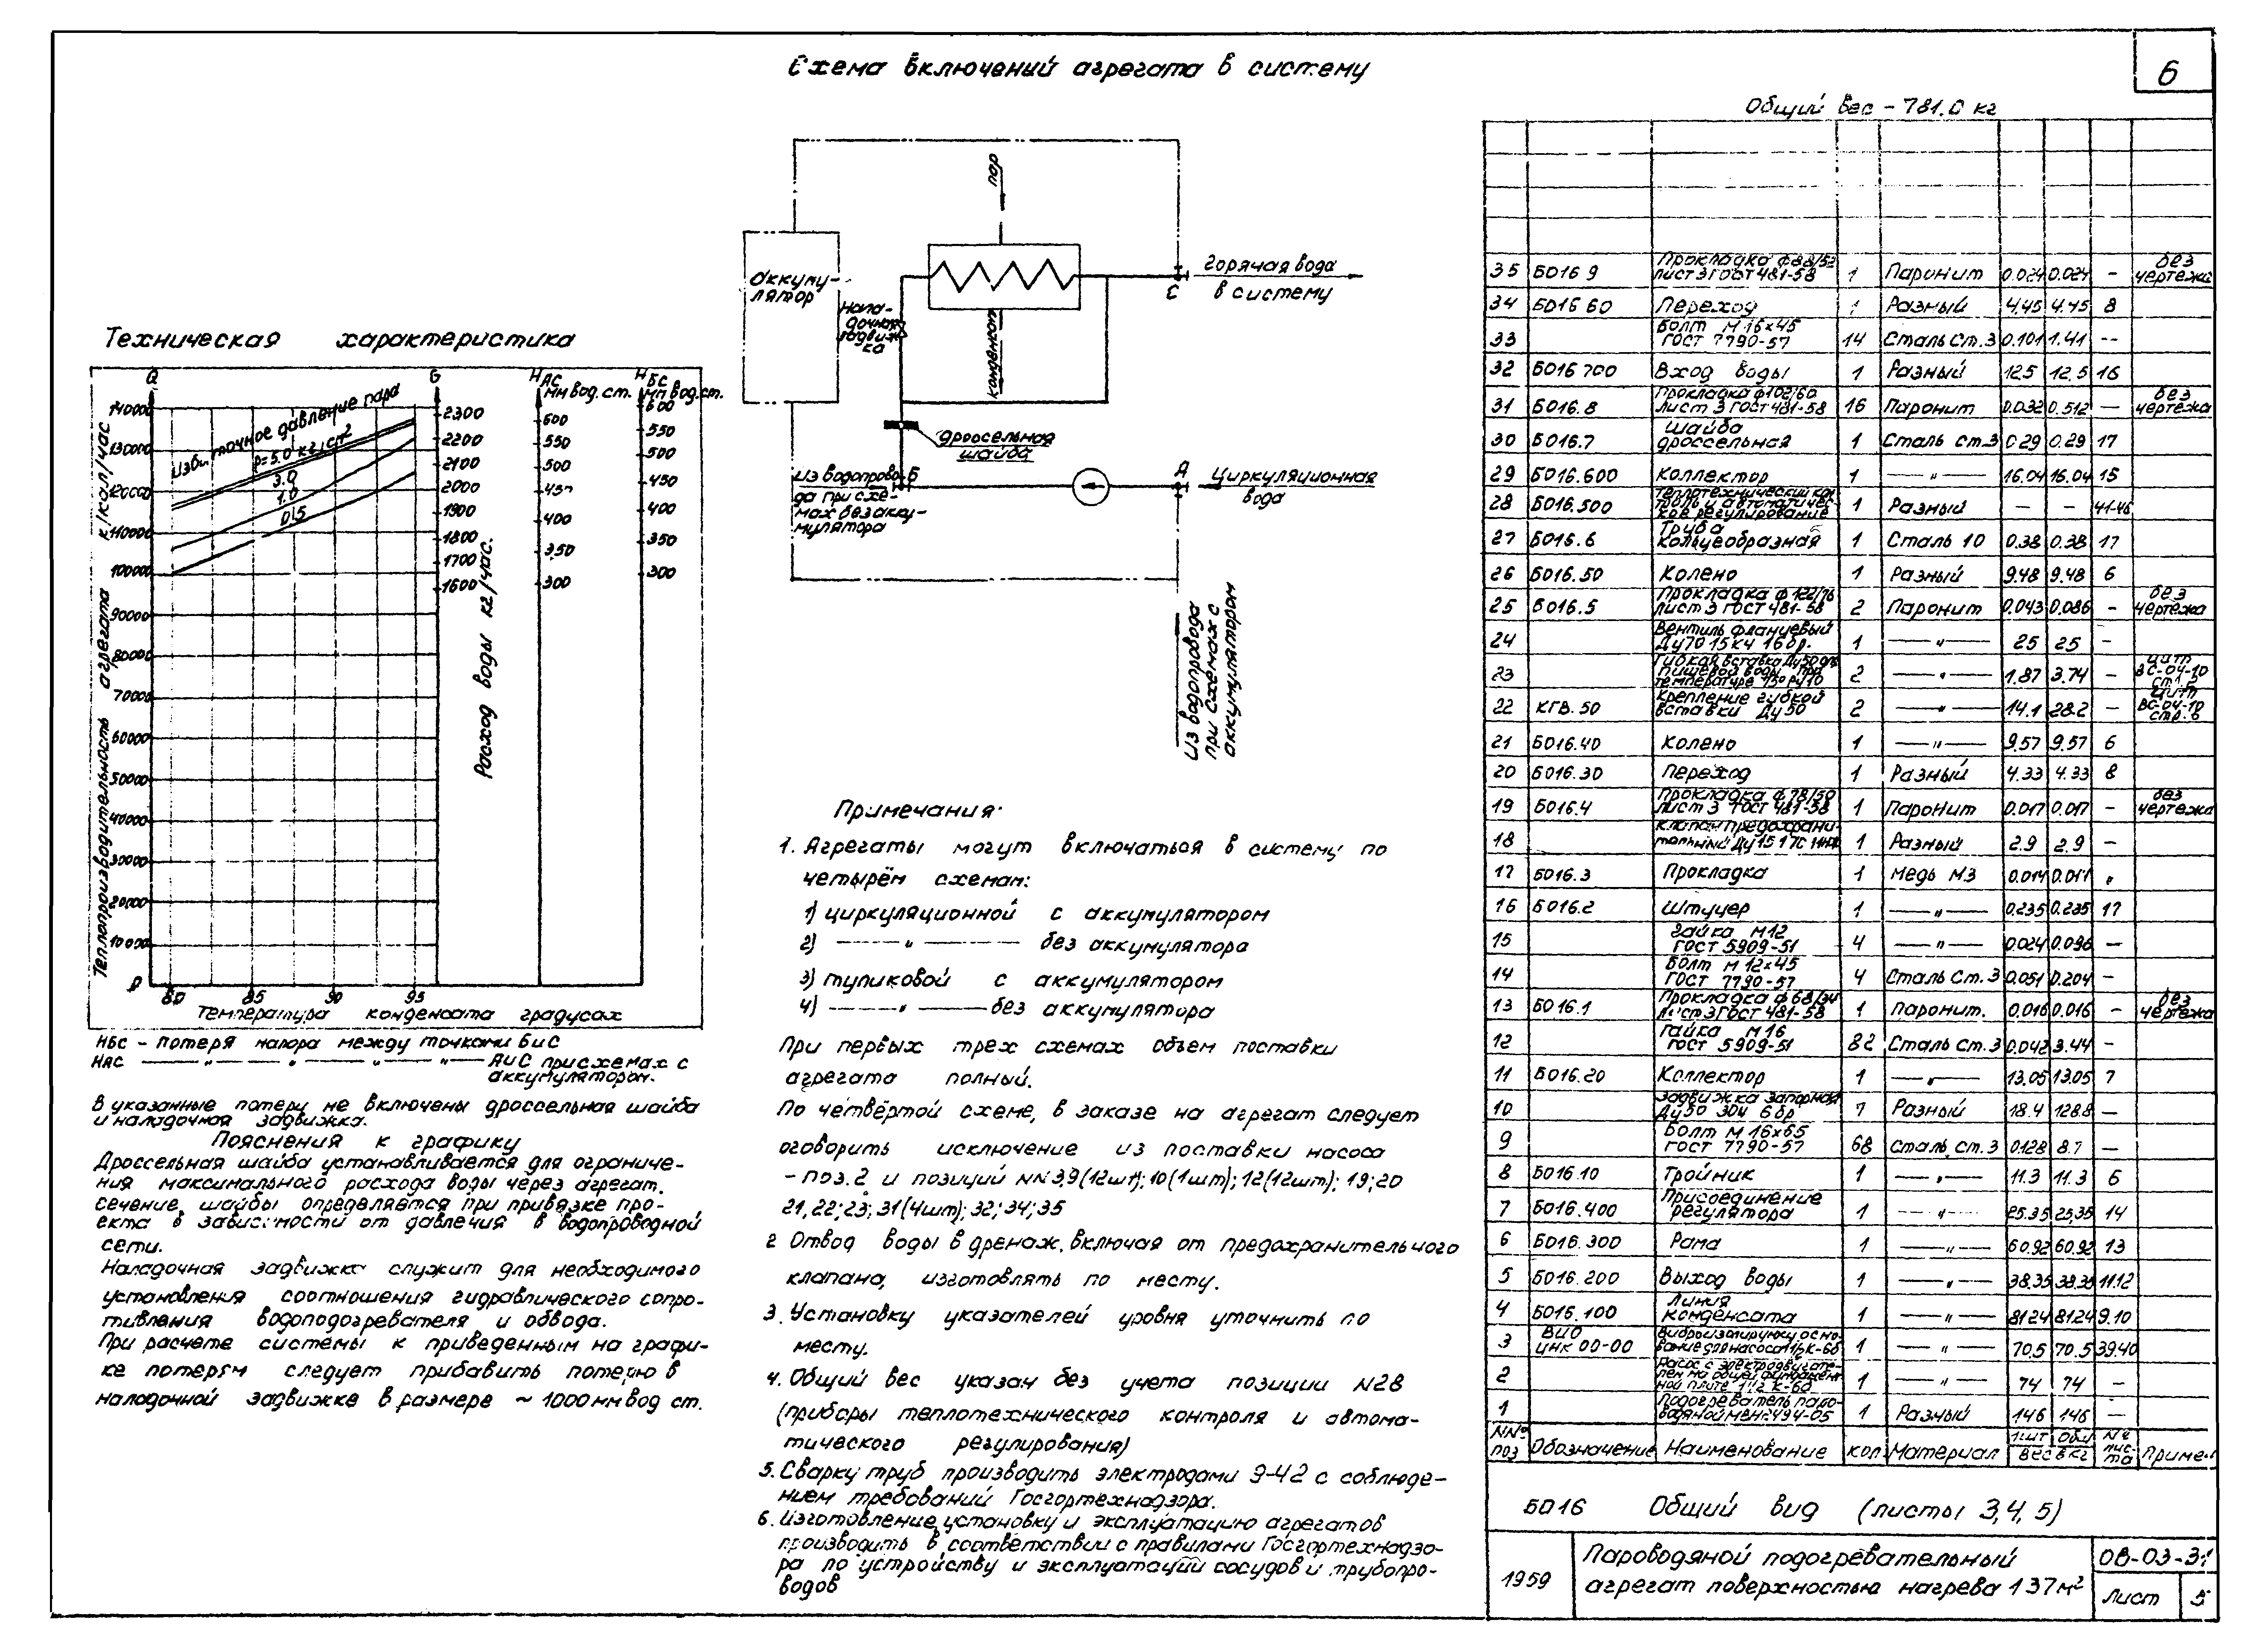 Схема включений агрегата в систему
6
Общий вес - 781.0 кг
Техническая характеристика
Q
G
НАС
мм вод. ст.
НБС
мм вод. ст.
Теплопроизводительность агрегата к/кал/час
140000
130000
120000
110000
100000
90000
80000
70000
60000
50000
40000
30000
20000
10000
0
Избыточное давление пара
p=5.0 кг/см²
3.0
1.0
0.5
2300
2200
2100
2000
1900
1800
1700
1600
Расход воды кг/час.
600
550
500
450
400
350
300
600
550
500
450
400
350
300
80 85 90 95
Температура конденсата градусах
НБС - потеря напора между точками Б и С
НАС —— " —— " —— " —— " — А и С при схемах с
аккумулятором.
В указанные потери не включены дроссельная шайба
и наладочная задвижка.
Пояснения к графику
Дроссельная шайба устанавливается для ограниче-
ния максимального расхода воды через агрегат.
Сечение шайбы определяется при привязке про-
екта в зависимости от давления в водопроводной
сети.
Наладочная задвижка служит для необходимого
установления соотношения гидравлического сопро-
тивления водоподогревателя и обвода.
При расчете системы к приведенным на графи-
ке потерям следует прибавить потерю в
наладочной задвижке в размере ~ 1000 мм вод ст.
пар
Аккуму-
лятор
Нала-
дочная
задвиж-
ка
конденсат
Горячая вода
в систему
С
дроссельная
шайба
Из водопрово-
да при схе-
мах без акку-
мулятора
Б
А
Циркуляционная
вода
Из водопровода
при схемах с
аккумулятором
Примечания:
1. Агрегаты могут включаться в систему по
четырём схемам:
1) циркуляционной с аккумулятором
2) —— " —— без аккумулятора
3) тупиковой с аккумулятором
4) —— " —— без аккумулятора
При первых трех схемах объем поставки
агрегата полный.
По четвёртой схеме, в заказе на агрегат следует
оговорить исключение из поставки насоса
- поз. 2 и позиций NN 3,9 (12шт); 10 (1шт); 12 (12шт); 19; 20
21, 22; 23; 31 (4шт); 32; 34; 35
2 Отвод воды в дренаж, включая от предохранительного
клапана, изготовлять по месту.
3. Установку указателей уровня уточнить по
месту.
4. Общий вес указан без учета позиции N28
(приборы теплотехнического контроля и автома-
тического регулирования)
5. Сварку труб производить электродами Э-42 с соблюде-
нием требований Госгортехнадзора.
6. Изготовление, установку и эксплуатацию агрегатов
производить в соответствии с правилами Госгортехнадзо-
ра по устройству и эксплуатации сосудов и трубопро-
водов
35 Б016 9 Прокладка ф88/52 лист 3 ГОСТ 481-58 1 Паронит 0.024 0.024 - без чертежа
34 Б016 60 Переход Разный 4.45 4.45 8
33 Болт М 16×45 ГОСТ 7790-57 14 Сталь Ст. 3 0.101 1.41 --
32 Б016 700 Вход воды 1 Разный 12.5 12.5 16
31 Б016.8 Прокладка ф102/60 лист 3 ГОСТ 481-58 16 Паронит 0.032 0.512 — без чертежа
30 Б016.7 Шайба дроссельная 1 Сталь ст.3 0.29 0.29 17
29 Б016.600 Коллектор 1 — " — 16.04 16.04 15
28 Б016.500 Теплотехнический кон- троль и автоматичес- ков регулирование 1 Разный — - 41-46
27 Б016.6 Труба кольцеобразная 1 Сталь 10 0.38 0.38 17
26 Б016.50 Колено 1 Разный 9.48 9.48 6
25 Б016.5 Прокладка ф122/76 лист 3 ГОСТ 481-58 2 Паронит 0.043 0.086 - без чертежа
24 Вентиль фланцевый Ду70 15кч 16бр. 1 — " — 25 25 -
23 Гибкая вставка Ду50 для пищевой воды при температуре 2 — " — 1.87 3.74 - ВС-04-10
22 КГВ.50 Крепление гибкой вставки Ду 50 2 — " — 14.1 28.2 - ВС-04-10 стр. 6
21 Б016.40 Колено 1 — " — 9.57 9.57 6
20 Б016.30 Переход 1 Разный 4.33 4.33 8
19 Б016.4 Прокладка ф78/50 лист 3 ГОСТ 481-58 1 Паронит 0.017 0.017 - без чертежа
18 Клапан предохрани- тельный Ду 15 1 Разный 2.9 2.9 -
17 Б016.3 Прокладка 1 медь М3 0.014 "
16 Б016.2 Штуцер 1 — " — 0.235 0.235 17
15 Гайка М12 ГОСТ 5909-51 4 — " — 0.024 0.096 —
14 Болт М 12×45 ГОСТ 7790-57 4 Сталь Ст. 3 0.051 0.204 -
13 Б016.1 Прокладка ф68/34 Лист 3 ГОСТ 481-58 1 Паронит. 0.016 0.016 - без чертежа
12 Гайка М16 ГОСТ 5909-51 82 Сталь Ст. 3 0.042 3.44 -
11 Б016.20 Коллектор 1 — " — 13.05 13.05 7
10 Задвижка запорная Ду50 30ч 6бр 7 Разный 18.4 128.8 —
9 Болт М 16×65 ГОСТ 7790-57 68 Сталь ст. 3 0.128 8.7 —
8 Б016.10 Тройник 1 — " — 11.3 11.3 6
7 Б016.400 Присоединение регулятора 1 — " — 25.35 25,35 14
6 Б016.300 Рама 1 — " — 60.92 60.92 13
5 Б016.200 Выход воды 1 — " — 38.35 38.35 11.12
4 Б016.100 Линия конденсата 1 — " — 81.24 81.24 9.10
3 ВИО ЦНК 00-00 Виброизолирующ осно- вание для насоса 1½ К-6б 1 — " — 70.5 70.5 39.40
2 Насос с электродвигате- лем на общей фундамент- ной плите 1 1/2 К-6б 1 — " — 74 74 —
1 Подогреватель паро- водяной мвн 2494-05 1 Разный 146 146 —
NNº поз Обозначение Наименование кол Материал 1шт Общ Вес в кг № лис- та Примеч
Б016 Общий вид (листы 3, 4, 5)
1959
Пароводяной подогревательный
агрегат поверхностью нагрева 1 37м²
ОВ-03-31
Лист 5